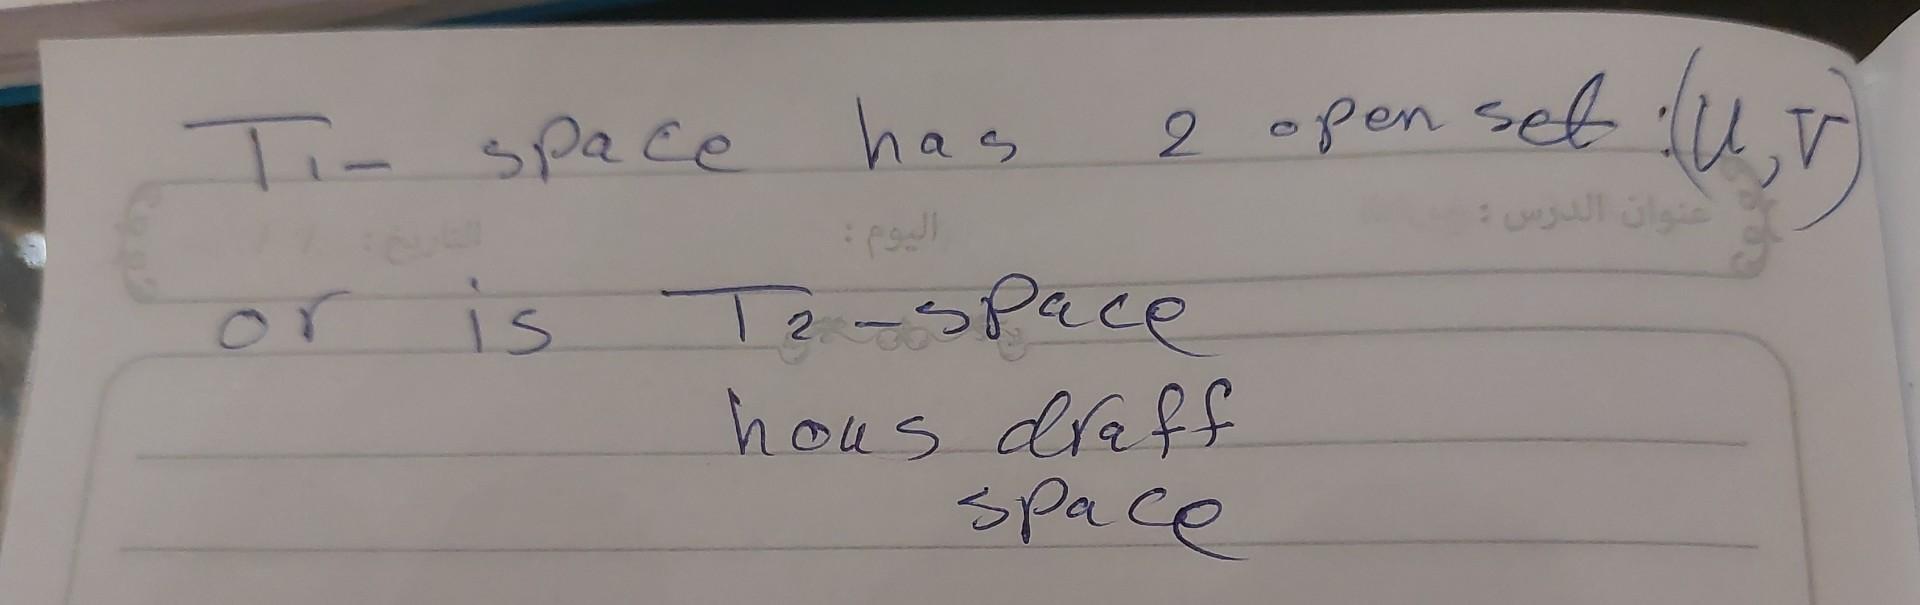 T1- space has 2 open set :(U,V)
عنوان الدرس : اليوم : التاريخ : / /
or is T2-space
hous draff
space